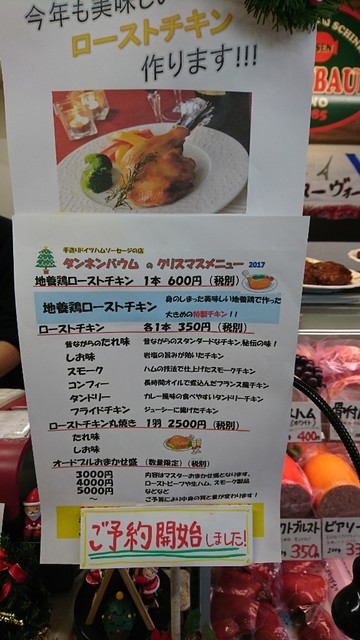 今年も美味しい
ローストチキン
作ります!!!
手造りドイツハムソーセージの店
タンネンバウム の クリスマスメニュー 2017
地養鶏ローストチキン 1本 600円 (税別)
地養鶏ローストチキン
身のしまった美味しい地養鶏で作った
大きめの特製チキン!!
ローストチキン 各1本 350円 (税別)
昔ながらのたれ味 昔ながらのスタンダードなチキン。秘伝の味!
しお味 岩塩の旨みが効いたチキン
スモーク ハムの技法で仕上げたスモークチキン
コンフィー 長時間オイルで煮込んだフランス風チキン
タンドリー カレー風味の食べやすいタンドリーチキン
フライドチキン ジューシーに揚げたチキン
ローストチキン丸焼き 1羽 2500円 (税別)
たれ味
しお味
オードブルおまかせ盛 (数量限定) (税別)
3000円 内容はマスターおまかせ盛となります。
4000円 ローストビーフや生ハム、スモーク製品
5000円 などなど
～ ご予算により中身の質と量が変わります!
ご予約開始しました!
ハム
400
350円